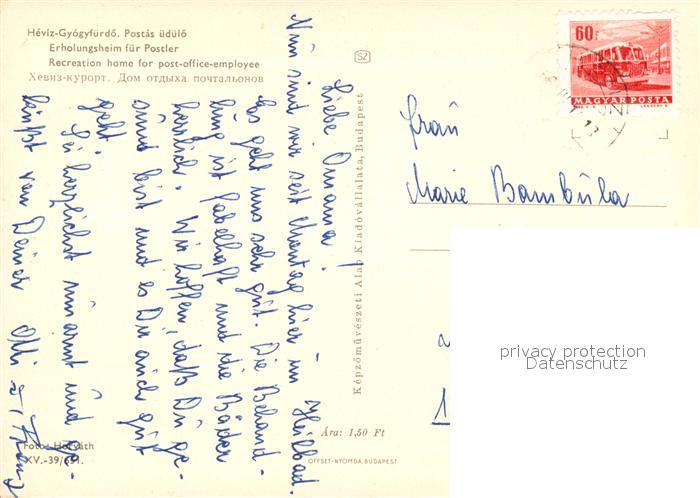 Hévíz-Gyógyfürdő. Postás üdülő
Erholungsheim für Postler
Recreation home for post-office-employee
Хевиз-курорт. Дом отдыха почтальонов
SZ
60f
MAGYAR POSTA
Liebe Omama!
Nun sind wir seit Montag hier im Heilbad.
Es geht uns sehr gut. Die Behand-
lung ist fabelhaft und die Bäder
herrlich. Wir hoffen, daß Du ge-
sund bist und es Dir auch gut
geht.
Sei herzlichst umarmt und ge-
küßt von Deiner Olli u. Franz
Frau
Marie Bambula
1
Képzőművészeti Alap Kiadóvállalata, Budapest
Ára: 1,50 Ft
OFFSET-NYOMDA, BUDAPEST
Foto: Horváth
XV.-39/651.
privacy protection
Datenschutz